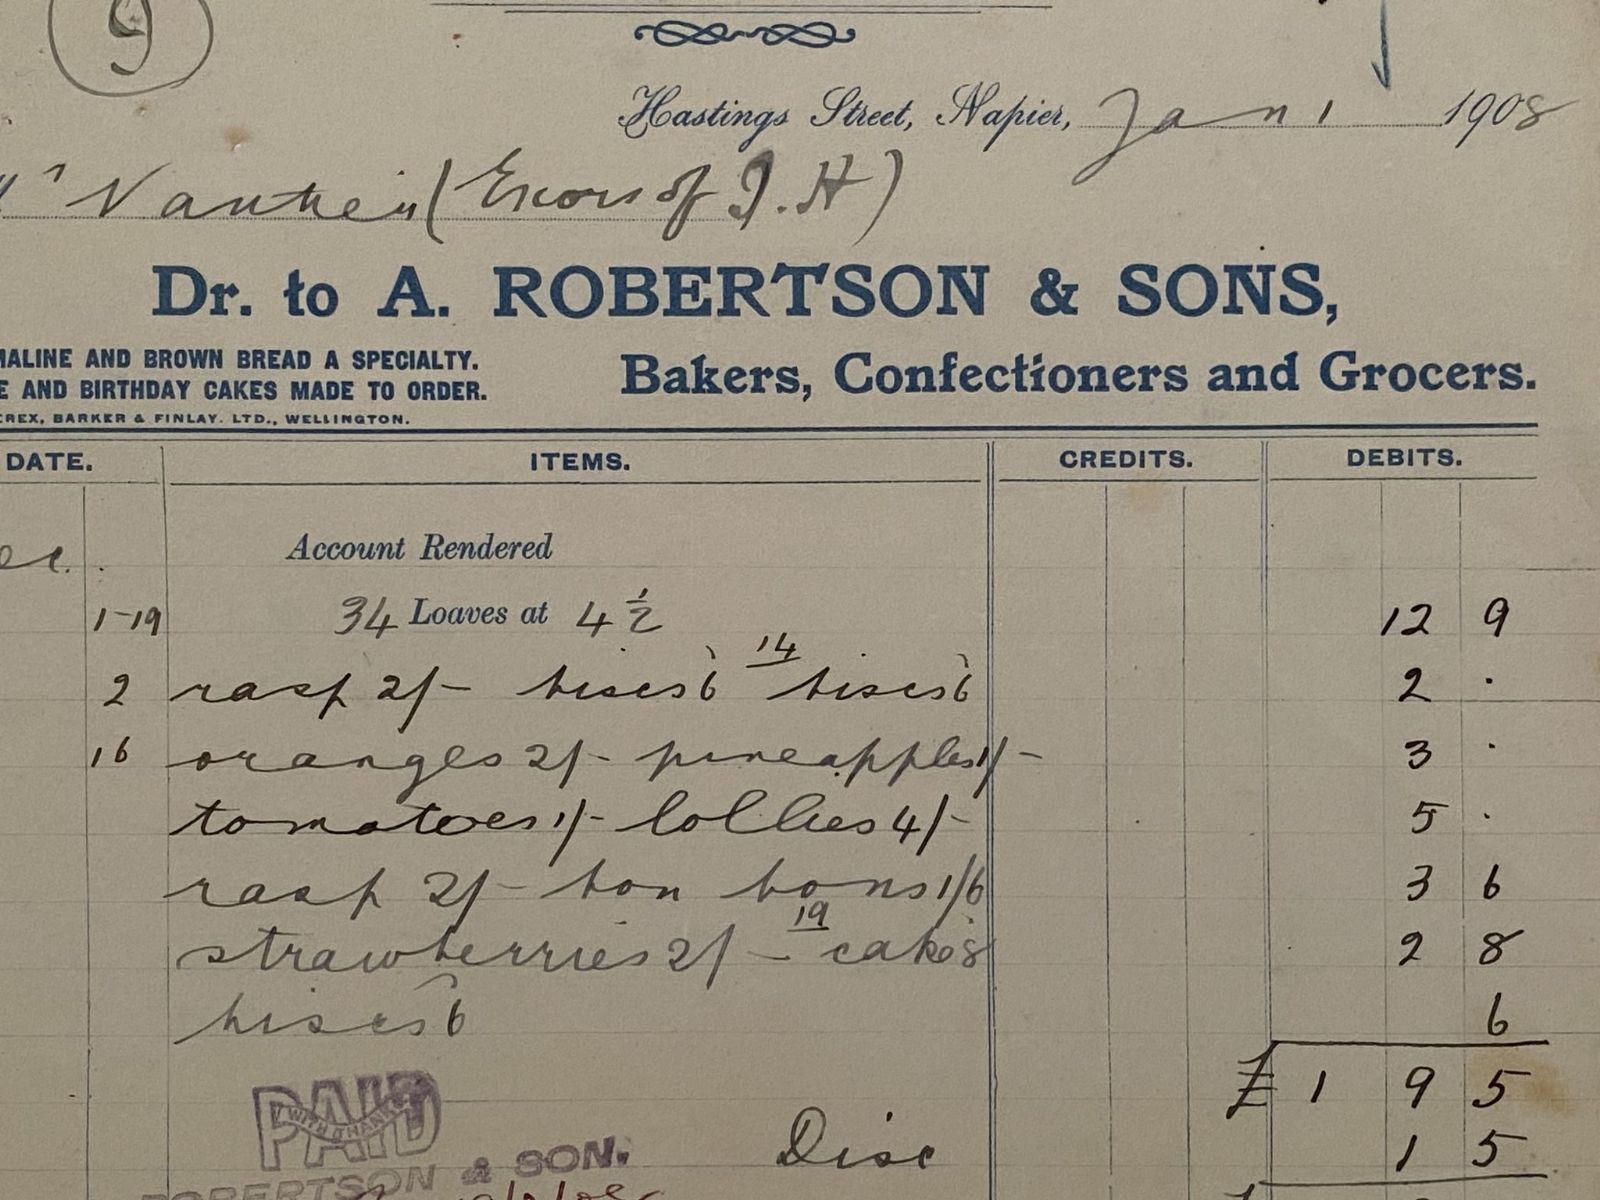 9
Hastings Street, Napier, Jan 1 1908
(Excors of J.H)
Dr. to A. ROBERTSON & SONS,
MALINE AND BROWN BREAD A SPECIALTY.
E AND BIRTHDAY CAKES MADE TO ORDER.
Bakers, Confectioners and Grocers.
REX, BARKER & FINLAY. LTD., WELLINGTON.
DATE. ITEMS. CREDITS. DEBITS.
ec. Account Rendered
1-19 34 Loaves at 4½ 12 9
2 rasp 2/- biscs 6 14 biscs 6 2 .
16 oranges 2/- pineapples 1/- 3 .
tomatoes 1/- lollies 4/- 5 .
rasp 2/- bon bons 1/6 3 6
strawberries 2/- 19 cake 8 2 8
biscs 6 6
£ 1 9 5
PAID
WITH THANKS
Disc 1 5
ROBERTSON & SON.